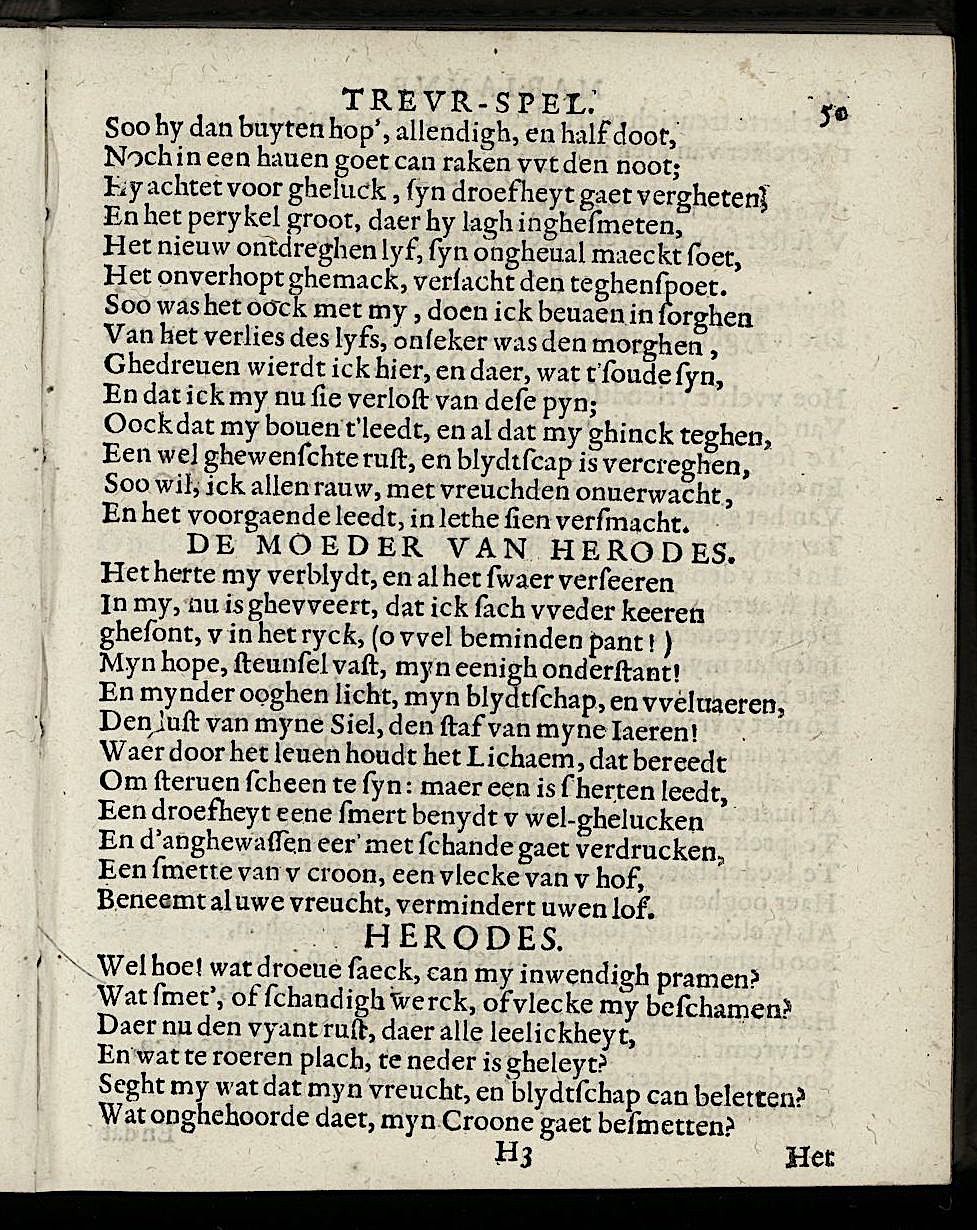 TREVR-SPEL.
50
Soo hy dan buyten hop', allendigh, en half doot,
Noch in een hauen goet can raken vvt den noot;
Hy achtet voor gheluck, ſyn droefheyt gaet vergheten;
En het perykel groot, daer hy lagh ingheſmeten,
Het nieuw ontdreghen lyf, ſyn ongheual maeckt ſoet,
Het onverhopt ghemack, verſacht den teghenſpoet.
Soo was het oock met my, doen ick beuaen in ſorghen
Van het verlies des lyfs, onſeker was den morghen,
Ghedreuen wierdt ick hier, en daer, wat t'ſoude ſyn,
En dat ick my nu ſie verloſt van deſe pyn;
Oock dat my bouen t'leedt, en al dat my ghinck teghen,
Een wel ghewenſchte ruſt, en blydtſcap is vercreghen,
Soo wil, ick allen rauw, met vreuchden onuerwacht,
En het voorgaende leedt, in lethe ſien verſmacht.
DE MOEDER VAN HERODES.
Het herte my verblydt, en al het ſwaer verſeeren
In my, nu is ghevveert, dat ick ſach vveder keeren
gheſont, v in het ryck, (o vvel beminden pant!)
Myn hope, ſteunſel vaſt, myn eenigh onderſtant!
En mynder ooghen licht, myn blydtſchap, en vveluaeren,
Den luſt van myne Siel, den ſtaf van myne Iaeren!
Waer door het leuen houdt het Lichaem, dat bereedt
Om ſteruen ſcheen te ſyn: maer een is ſ'herten leedt,
Een droefheyt eene ſmert benydt v wel-ghelucken
En d'anghewaſſen eer' met ſchande gaet verdrucken,
Een ſmette van v croon, een vlecke van v hof,
Beneemt al uwe vreucht, vermindert uwen lof.
HERODES.
Wel hoe! wat droeue ſaeck, can my inwendigh pramen?
Wat ſmet', of ſchandigh werck, of vlecke my beſchamen?
Daer nu den vyant ruſt, daer alle leelickheyt,
En wat te roeren plach, te neder is gheleyt?
Seght my wat dat myn vreucht, en blydtſchap can beletten?
Wat onghehoorde daet, myn Croone gaet beſmetten?
H3
Het